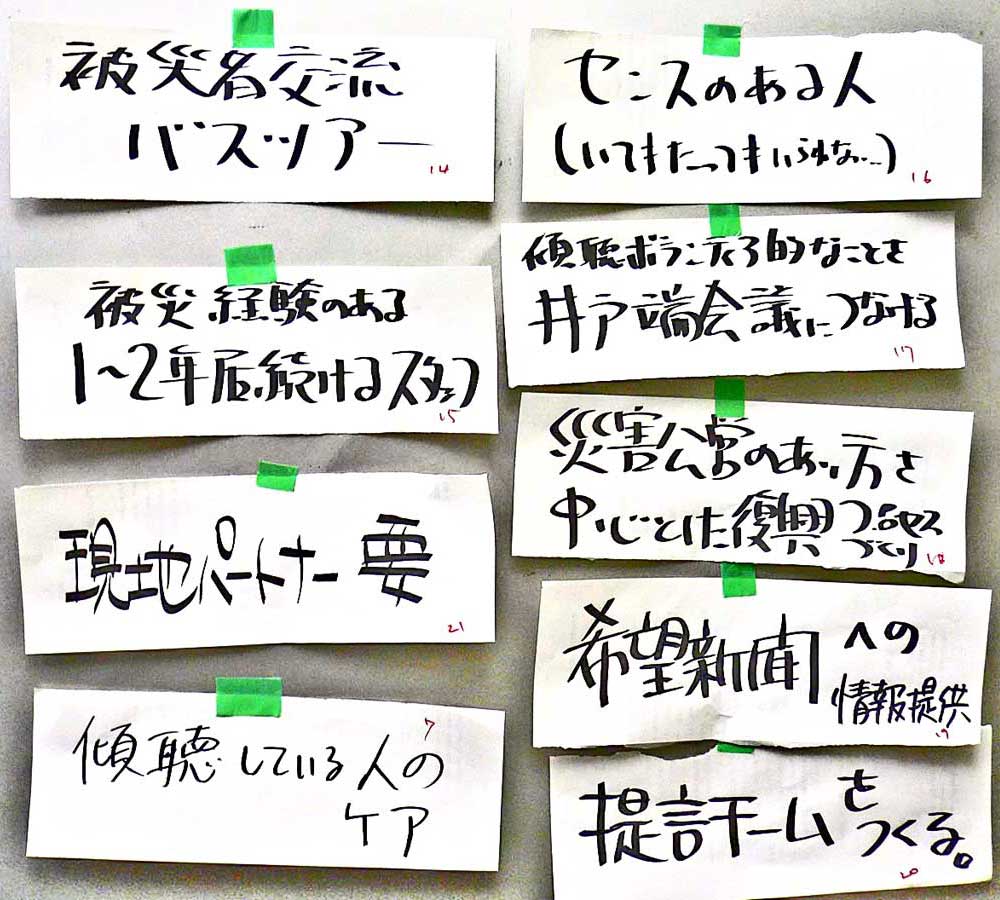 被災者交流
バスツアー
14
被災経験のある
1〜2年居続けるスタッフ
15
現地パートナー 要
21
7
傾聴している人の
ケア
センスのある人
(いてもたってもいられない…)
16
傾聴ボランティア的なことを
井戸端会議につなげる
17
災害公営のあり方を
中心とした復興プロセス
づくり
18
希望新聞への
情報提供
19
提言チームを
つくる。
20